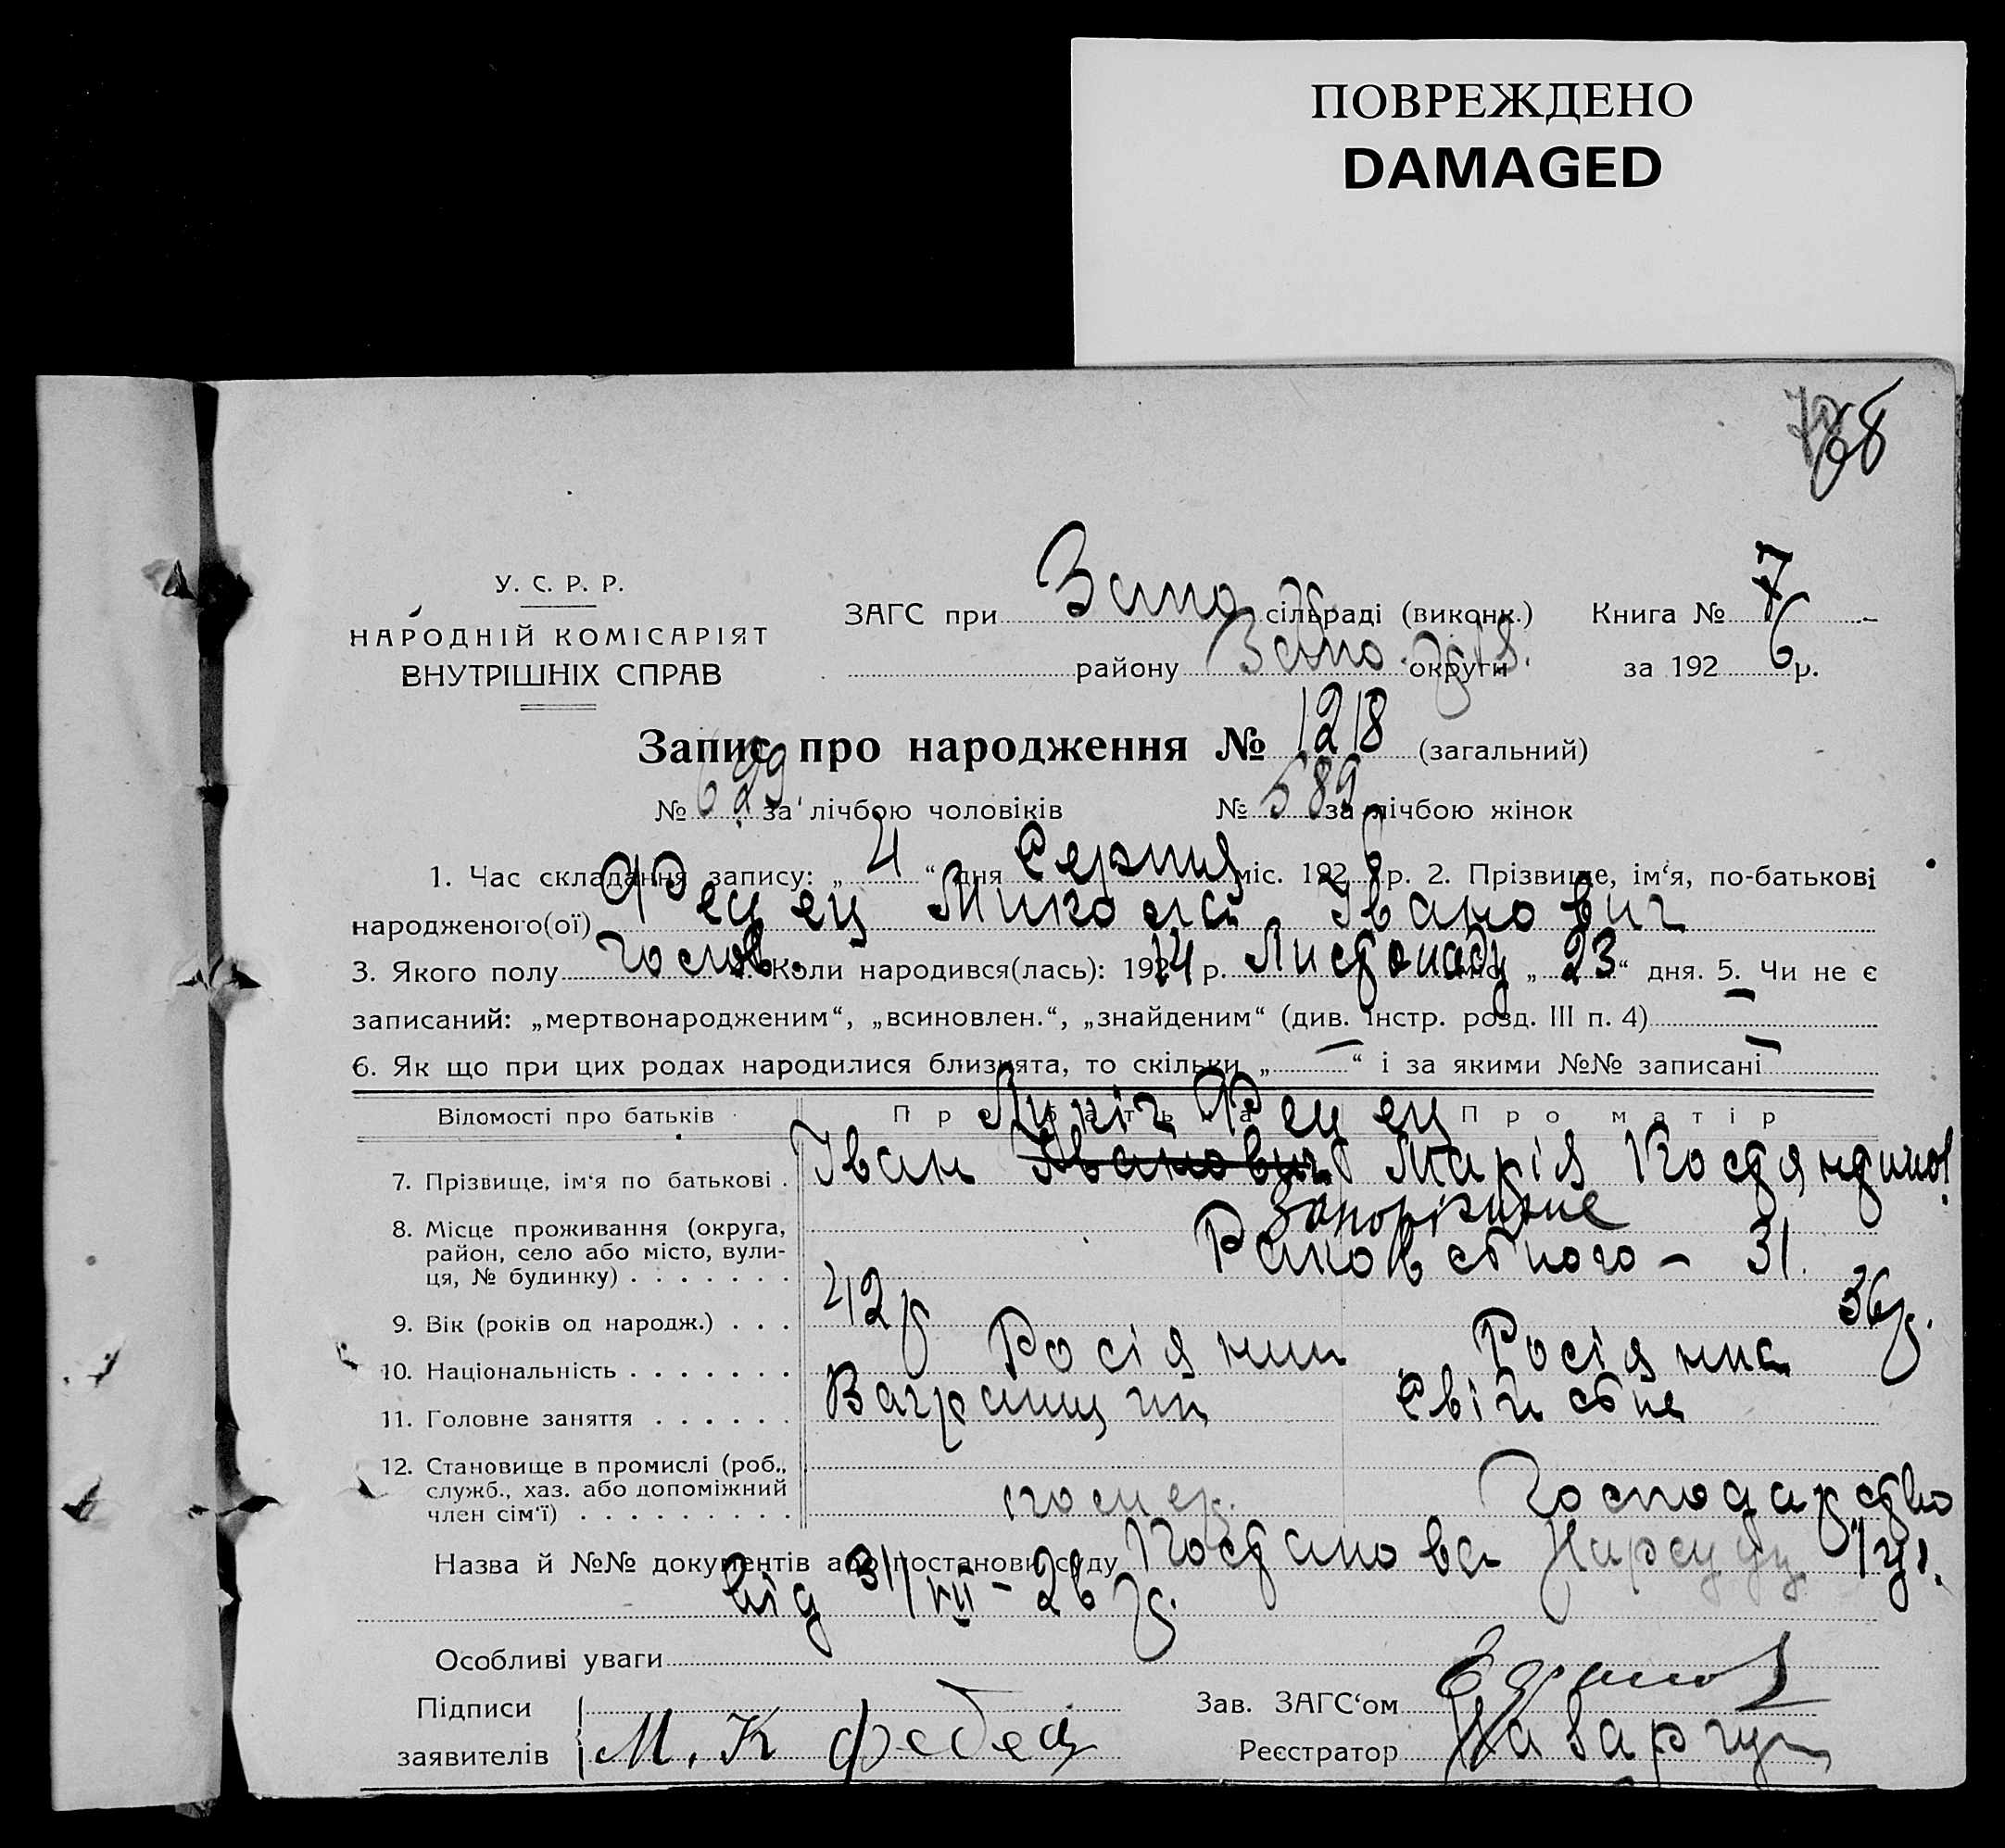 ПОВРЕЖДЕНО
DAMAGED
68
У. С. Р. Р.
НАРОДНІЙ КОМІСАРІЯТ
ВНУТРІШНІХ СПРАВ
ЗАГС при Запо сільраді (виконк.) Книга № 7
району Запо округи за 192 6 р.
Запис про народження № 1218 (загальний)
№ 629 за лічбою чоловіків № 589 за лічбою жінок
1. Час складання запису: „ 4 “ дня Серпня міс. 192 6 р. 2. Прізвище, ім‘я, по-батькові
народженого(ої) Микола Іванович
3. Якого полу чолов. 4. Коли народився(лась): 1914 р. Листопаду „ 23 “ дня. 5. Чи не є
записаний: „мертвонародженим“, „всиновлен.“, „знайденим“ (див. інстр. розд. III п. 4) —
6. Як що при цих родах народилися близнята, то скільки „ — “ і за якими №№ записані —
Відомості про батьків Про батька Про матір
7. Прізвище, ім‘я по батькові . Іван Іванович Марія Костянтинов.
8. Місце проживання (округа, район, село або місто, вулиця, № будинку) . . . . . . . Запоріжжє
Раковського – 31.
9. Вік (років од народж.) . . . 42 р 36 р.
10. Національність . . . . . . . Росіянин Росіянка
11. Головне заняття . . . . . . Ваграшчик Свійське
12. Становище в промислі (роб., служб., хаз. або допоміжний член сім‘ї) . . . . . . . . . Господарство
Назва й №№ документів або постанови суду Постанова Нарсуду
від 31/VII – 26 р.
Особливі уваги
Підписи заявителів М. К Федец
Зав. ЗАГС‘ом
Реєстратор